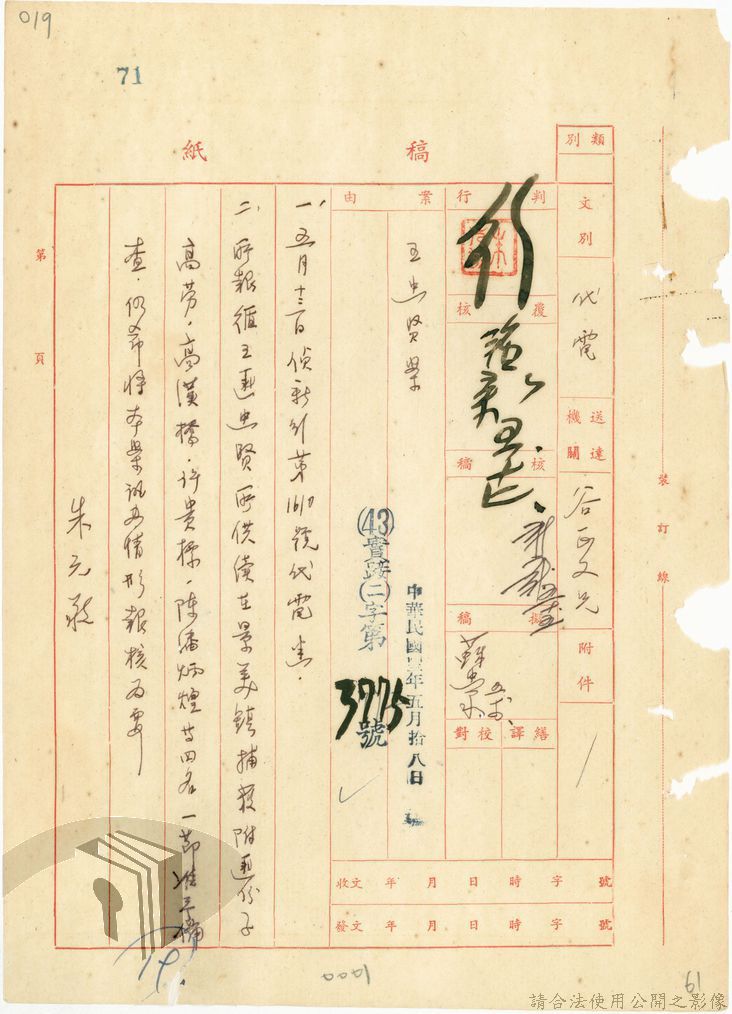 019
71
稿紙
類別
文別
代電
送達機關
谷正文兄
附件
判行
行
覆核
核稿
擬稿
繕譯
校對
案由
王忠賢案
中華民國卌三年五月拾八日
(43)實踐(二)字第
3775
號
一、五月十三日偵新外第1610號代電悉.
二、所報循王匪忠賢所供續在景美鎮捕獲附匪份子
高勞.高漢橋.許貴標.陳潘炳煌等四名一節准予備
查.仍希將本案訊辦情形報核為要
朱元
收文 年 月 日 時 字 號
發文 年 月 日 時 字 號
第 頁
裝訂線
1000
19
請合法使用公開之影像